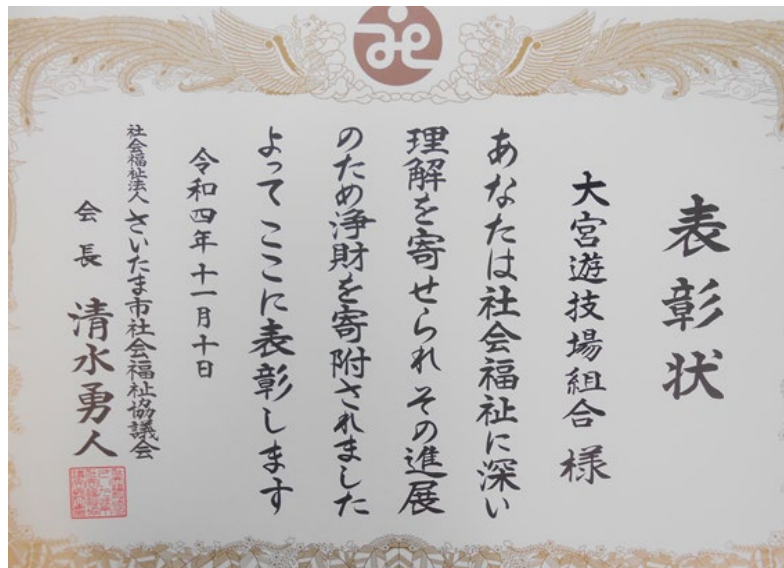 表彰状
大宮遊技場組合 様
あなたは社会福祉に深い
理解を寄せられ その進展
のため浄財を寄附されました
よって ここに表彰します
令和四年十一月十日
社会福祉法人 さいたま市社会福祉協議会
会長 清水勇人